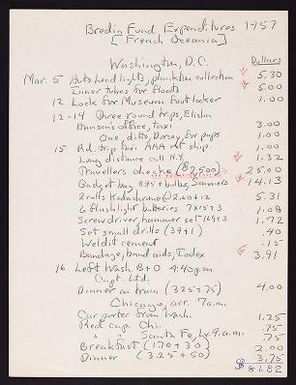 Bredin Fund Expenditures 1957
[French Oceania]
Washington, D.C. Dollars
Mar. 5 Auto head lights, plankton collection 5.30
Inner tubes for floats 6.00
12 Lock for Museum foot locker 1.00
12-14 Three round trips, Elisha
Hanson's office, taxi 3.00
One ditto, Dorsey, for paps 1.00
15 Rd. trip taxi AAA net ship. 1.00
Long distance call N.Y. 1.32
Travellers checks ($2,500) 25.00
Gadget bag 895 + bulbs, Sommers 14.13
2 rolls Kodachrome @ 2.60+12 5.31
6 flashlight batteries 7x15+3 1.08
Screwdriver, hammer set 169+3 1.72
Set small drills (39+1) .40
Weldit cement .15
Bandage, band aids, Iodex 3.91
16 Left Wash. B+O 4:40 pm
Cngt. Ltd.
Dinner on train (325+75) 4.00
Chicago, arr. 7 a.m.
Car porter from Wash. 1.25
Red cap. Chi. .75
" " Santa Fe, Lv 9 a.m. .75
Breakfast (170+30) 2.00
Dinner (3.25+50) 3.75
$ 81.82